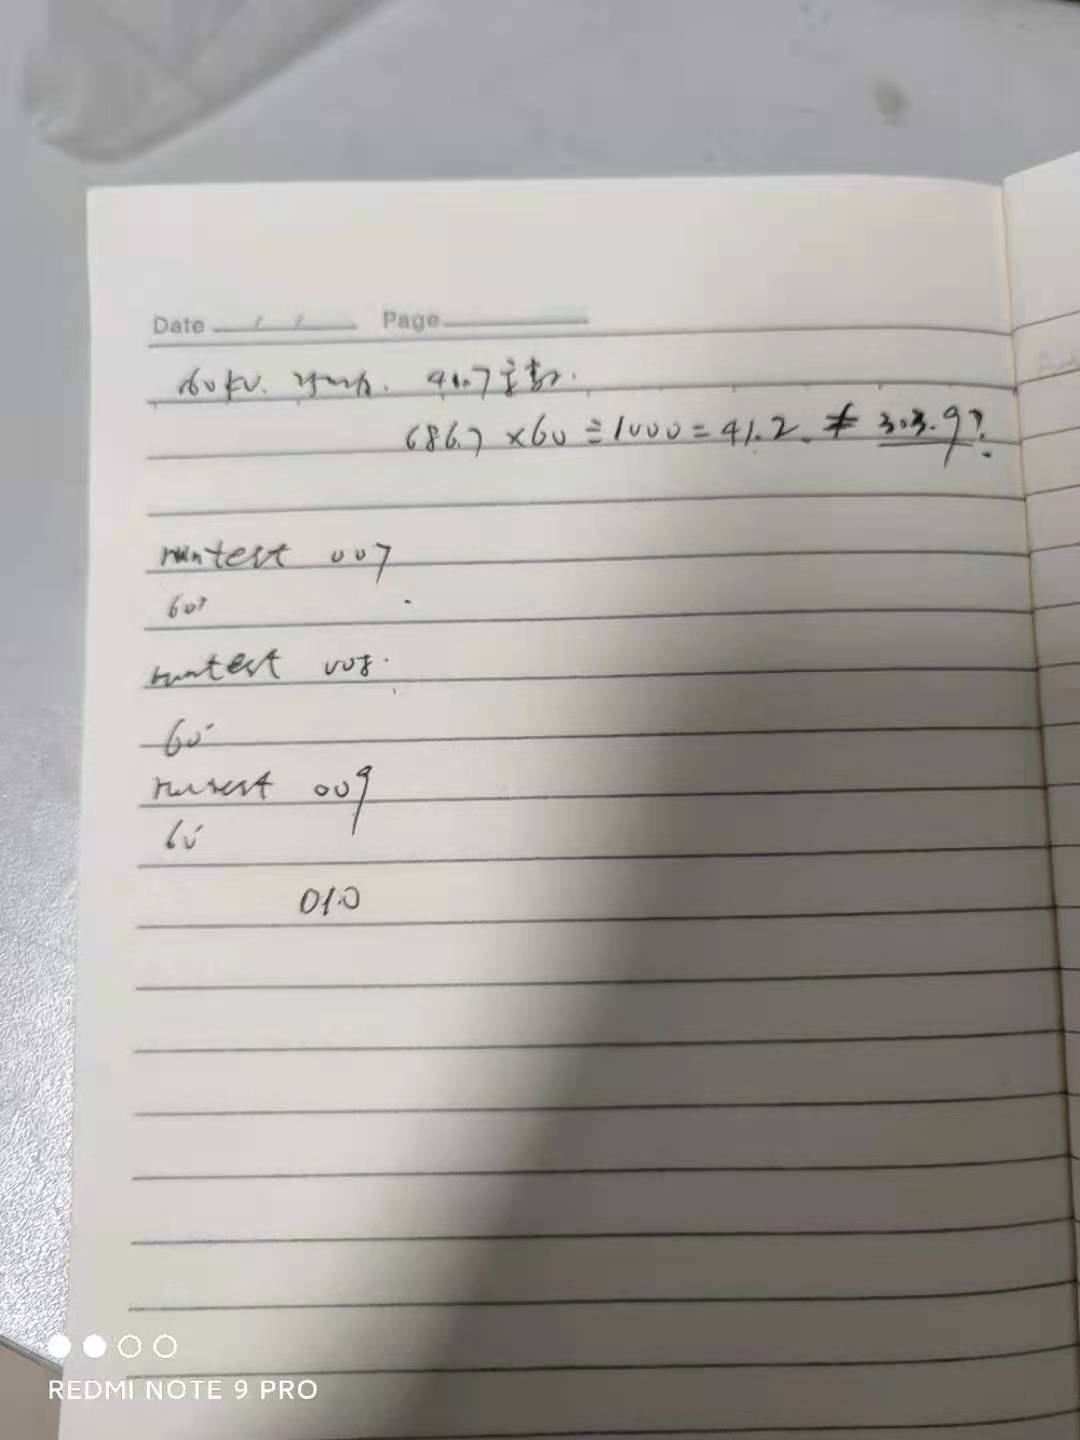 Date / / Page
60kV. 41.7毫安.
686.7 ×60 ÷1000 = 41.2 ≠ 303.9?
runtest 007
60
runtest 008.
60
runtest 009
60
010
REDMI NOTE 9 PRO